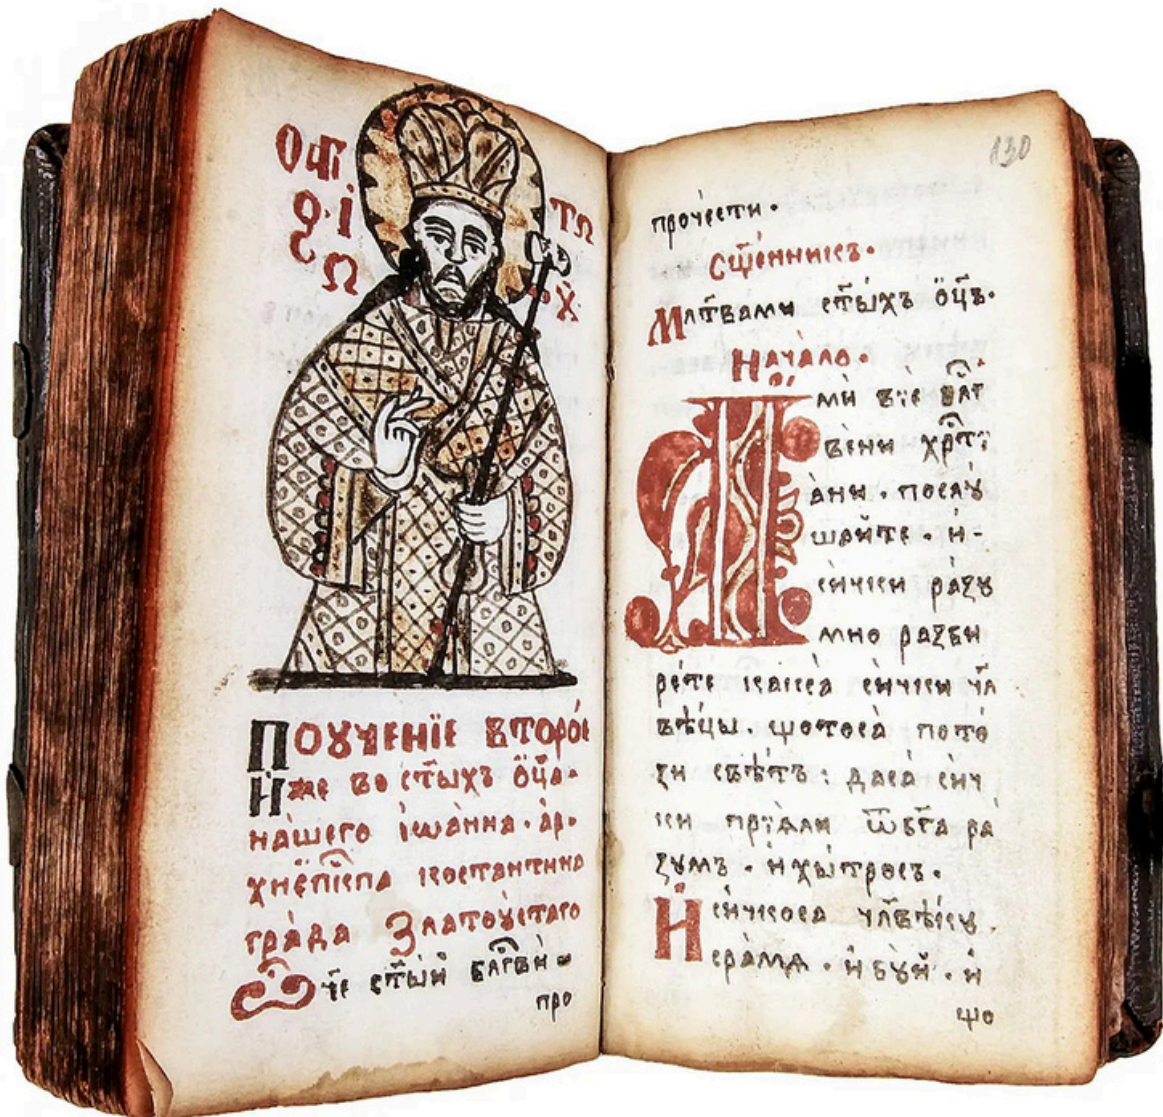 ПОУЧЕНЇЕ ВТОРО́Е
И҆́же во ст҃ыхъ ѻ҆ц҃а̀
на́шего і҆ѡа́нна · а҆р·
хиєпⷭ҇кпа костантина
гра́да Златоу́стаго
Ѿч҃е ст҃ы́й бл҃гвѝ ·
про
130
прочести ·
сщ҃е́нникъ ·
Мл҃твами ст҃ыхъ ѻ҆ц҃ъ ·
Нача́ло ·
мѝ вїе бл҃г
вени хрⷭ҇тї
а́ни · послꙋ
шайте · и҆ ·
си́чки ра́зꙋ
мно разби
ре́те кака́са си́чки чл҃
вѣ́цы · щотоса̀ по то́
зи свѣ́тъ : да са̀ си́ч
ки прїѧ́ли ѿ бг҃а ра́
зумъ · и҆ хы́трось ·
И҆ си́чкоса чл҃вѣ́кꙋ ·
сра́мѧ · и҆ бꙋ́й · и҆
що